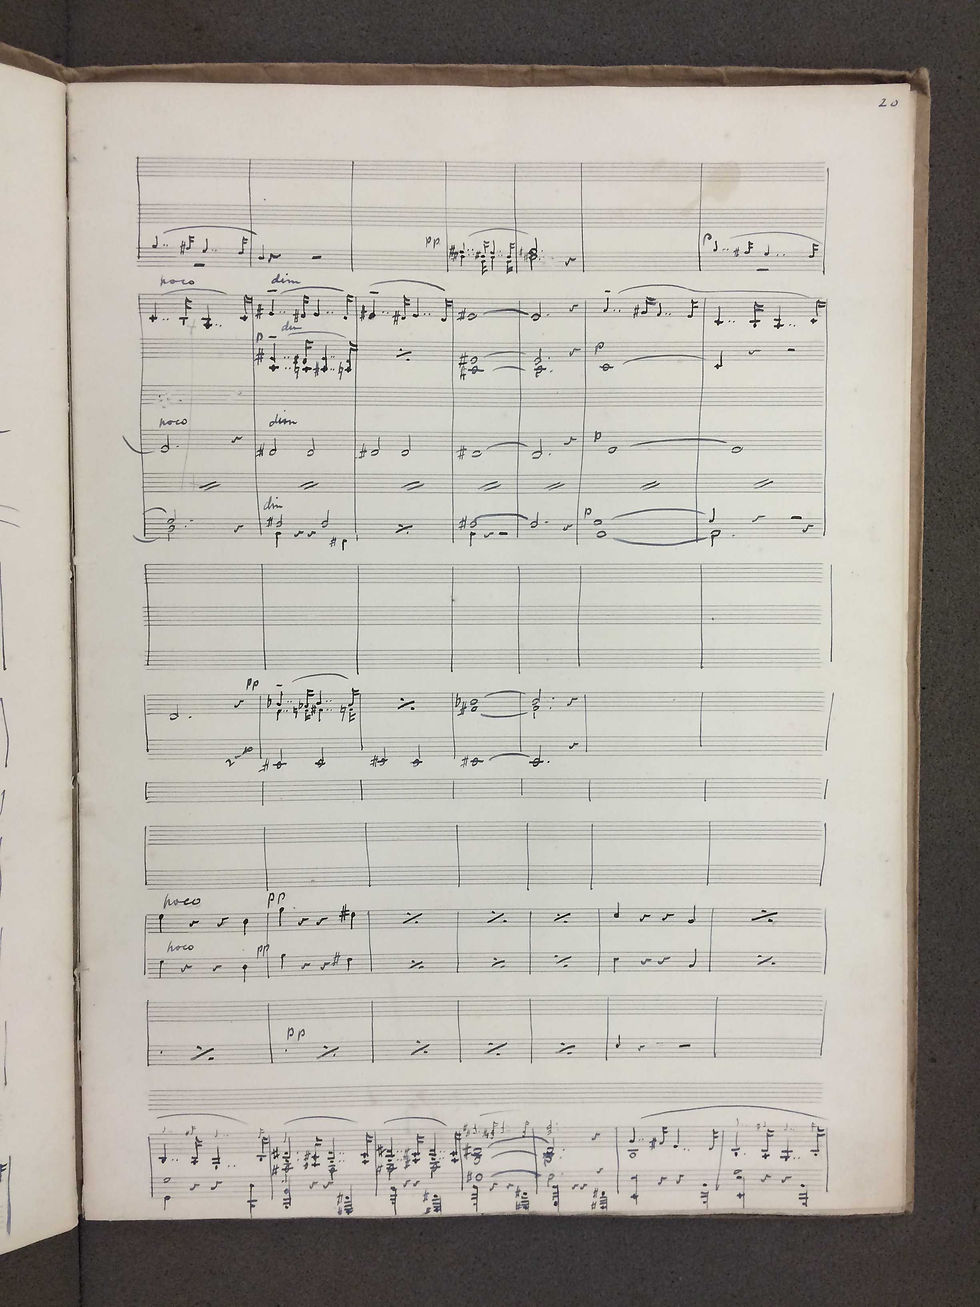 20
pp
p
poco dim
dim
p
p
poco dim
p
dim
p
pp
poco pp
poco pp
pp